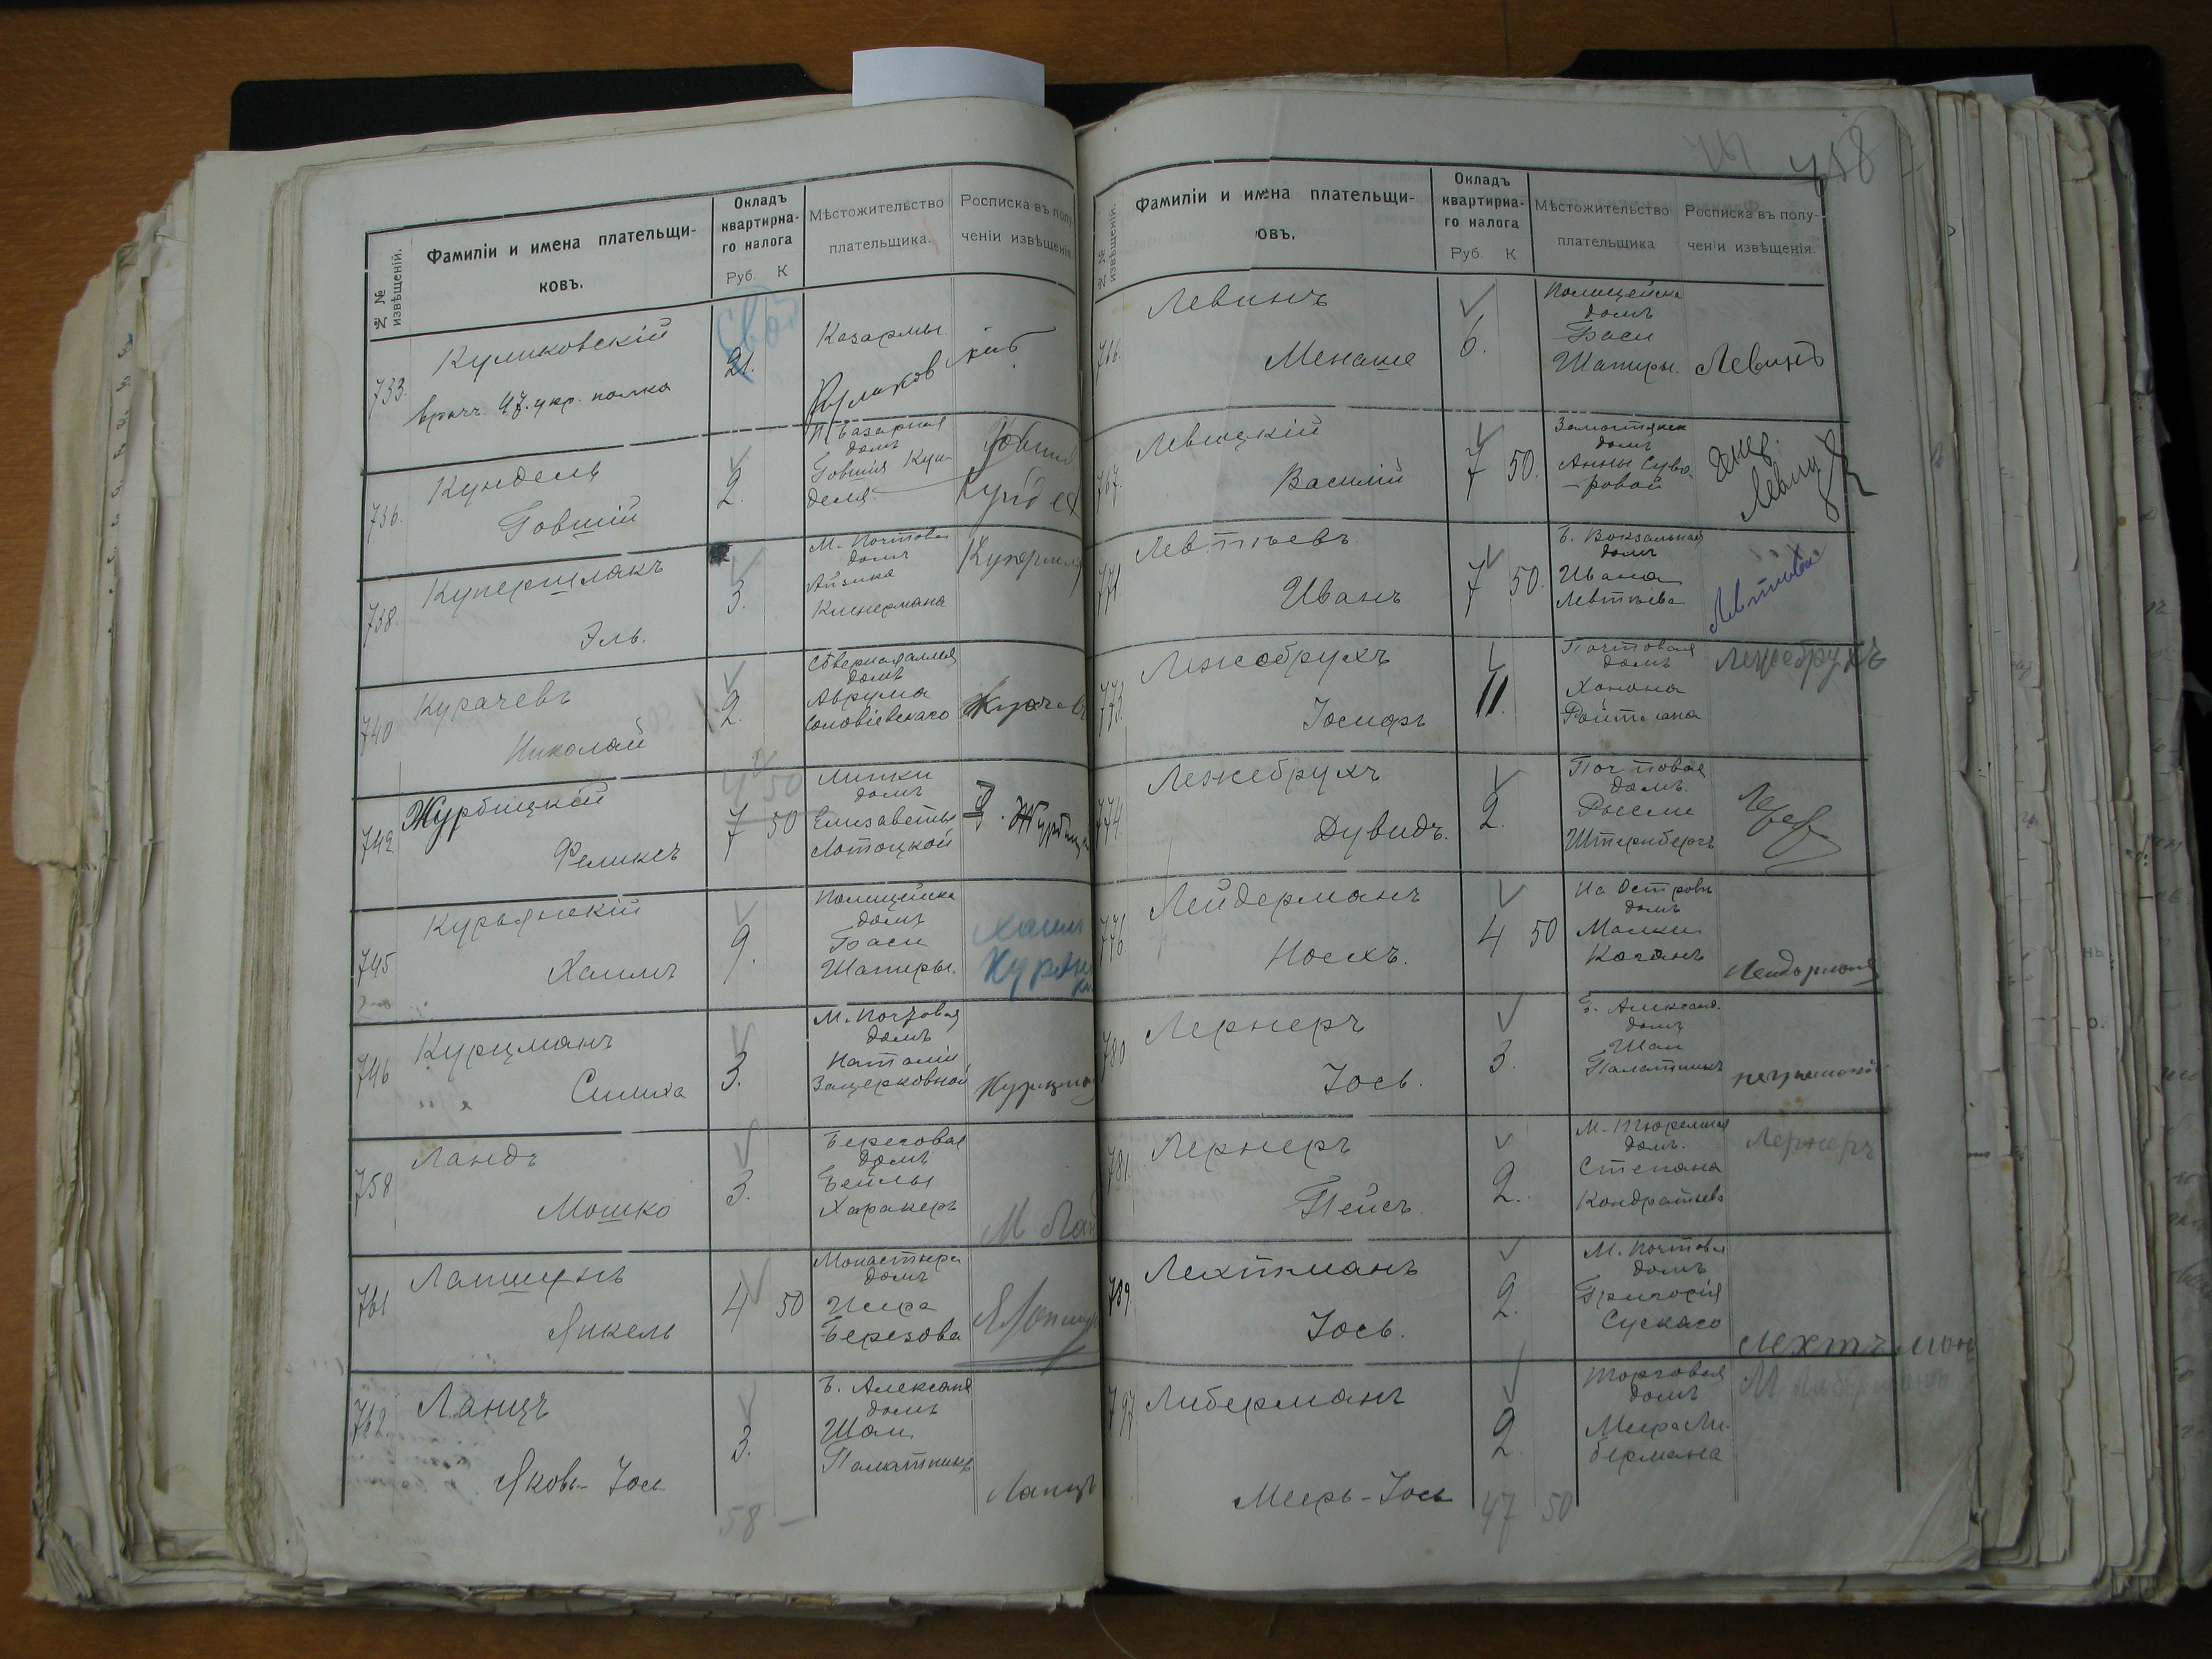 № № извѣщеній.
Фамиліи и имена плательщи-
ковъ.
Окладъ
квартирна-
го налога
Руб. К
Мѣстожительство
плательщика.
Росписка въ полу-
ченіи извѣщенія
733.
Куликовскій
врачъ 47. укр. полка
21.
Казармы.
736.
Кундель
Говшій
2.
П. Базарная
домъ
Говшія Кун-
деля
738.
Купершлакъ
Эль.
3.
М. Почтова
домъ
Айзика
Клинермана
740
Курачевъ
Николай
2.
домъ
Аврума
Соловіевскаго
742
Журбицкій
Феликсъ
4 50
7 50
Липки
домъ
Елизаветы
Лотоцкой
745
Курьянскій
Хаимъ
9.
Полицейска
домъ
Баси
Шапиры.
Хаимъ
746
Курцманъ
Симха
3.
М. Почтовая
домъ
Наталіи
Зацерковной
758
Ландъ
Мошко
3.
Береговая
домъ
Бейлы
Харакеръ
М. Ланд
761
Лапшунъ
Янкель
4 50
Монастырс
домъ
Исера
Березова
762
Ланцъ
Яковъ-Іось
3.
Б. Александ
домъ
Шаи
Палатникъ
Ланцъ
58 —
758
№ № извѣщеній.
Фамиліи и имена плательщи-
ковъ.
Окладъ
квартирна-
го налога
Руб. К
Мѣстожительство
плательщика
Росписка въ полу-
ченіи извѣщенія.
766.
Левинъ
Менаше
6.
Полицейска
домъ
Баси
Шапиры.
Левинъ
767.
Левицкій
Василій
7 50.
домъ
Анны Суво-
ровой
771.
Левтѣевъ
Иванъ
7 50.
Б. Вокзальная
домъ
Ивана
Левтѣева
773.
Лежебрухъ
Іосифъ
11.
Почтовая
домъ
Ханона
Ройтмана
Лежебрухъ
774
Лежебрухъ
Дувидъ.
2.
Почтовая
домъ.
Рысли
Штернбергъ
776
Лейдерманъ
Носхъ.
4 50
На Островѣ
домъ
Малки
Коганъ
780
Лернеръ
Іось.
3.
Б. Александ.
домъ
Шаи
Палатникъ
неграмотный
781.
Лернеръ
Пейсъ.
2.
М. Тюремная
домъ.
Степана
Кондратьева
Лернеръ
789.
Лехтманъ
Іось.
2.
М. Почтова
домъ
Григорія
Сускаго
Лехтъман
797
Либерманъ
Мееръ-Іось
2.
Торговая
домъ
Меера Ли-
бермана
М. Либерманъ
47 50